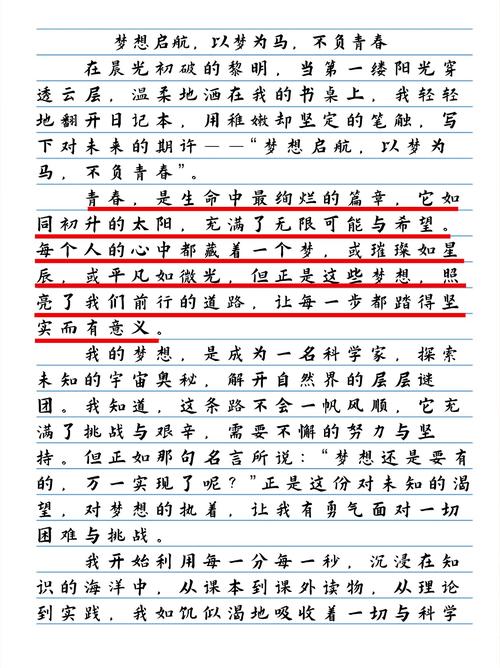 梦想启航，以梦为马，不负青春
在晨光初破的黎明，当第一缕阳光穿
透云层，温柔地洒在我的书桌上，我轻轻
地翻开日记本，用稚嫩却坚定的笔触，写
下对未来的期许——“梦想启航，以梦为
马，不负青春”。
青春，是生命中最绚烂的篇章，它如
同初升的太阳，充满了无限可能与希望。
每个人的心中都藏着一个梦，或璀璨如星
辰，或平凡如微光，但正是这些梦想，照
亮了我们前行的道路，让每一步都踏得坚
实而有意义。
我的梦想，是成为一名科学家，探索
未知的宇宙奥秘，解开自然界的层层谜
团。我知道，这条路不会一帆风顺，它充
满了挑战与艰辛，需要不懈的努力与坚
持。但正如那句名言所说：“梦想还是要有
的，万一实现了呢？”正是这份对未知的渴
望，对梦想的执着，让我有勇气面对一切
困难与挑战。
我开始利用每一分每一秒，沉浸在知
识的海洋中，从课本到课外读物，从理论
到实践，我如饥似渴地吸收着一切与科学